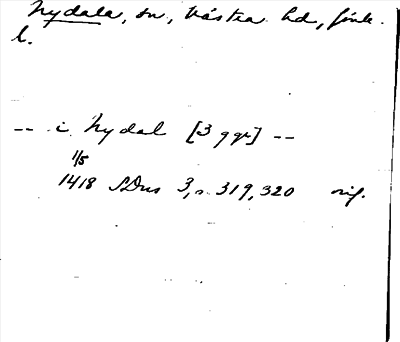 Nydala, sn, Västra hd, Jönk.
l.
-- i Nydal [3 ggr] --
1/5
1418 SDns 3, s. 319, 320 orig.